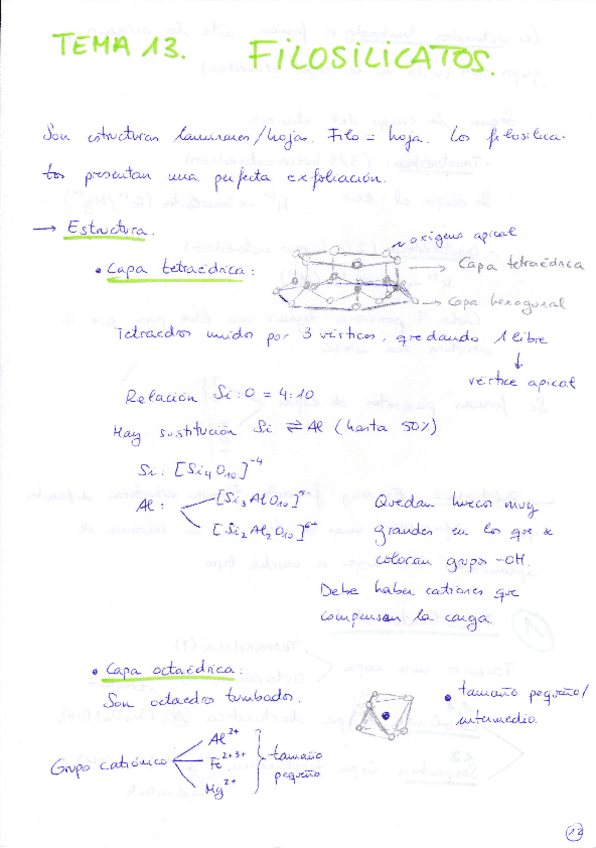 TEMA 13. FILOSILICATOS.
Son estructuras laminares/hojas. Filo = hoja. Los filosilica-
tos presentan una perfecta exfoliación.
→ Estructura.
oxígeno apical
• Capa tetraédrica:
→ Capa tetraédrica
→ Capa hexagonal
Tetraedros unidos por 3 vértices, quedando 1 libre
↓
vértice apical
Relación Si:O = 4:10
Hay sustitución Si ⇌ Al (hasta 50%)
Si: [Si4O10]-4
Al: [Si3AlO10]5-
[Si2Al2O10]6-
Quedan huecos muy
grandes en los que se
colocan grupos -OH.
Debe haber cationes que
compensen la carga.
• Capa octaédrica:
Son octaedros tumbados.
• tamaño pequeño/
intermedio.
Grupo catiónico
Al2+
Fe2+3+
Mg2+
tamaño
pequeño
12